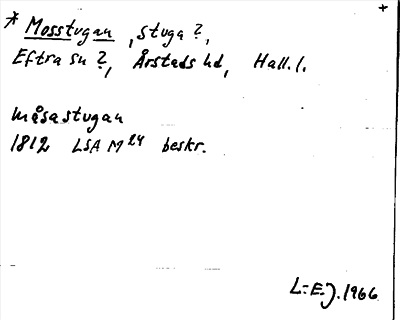 +
* Mosstugan, stuga?,
Eftra sn?, Årstads hd, Hall. l.
måsastugan
1812 LSA M 24 beskr.
L:E:J. 1966